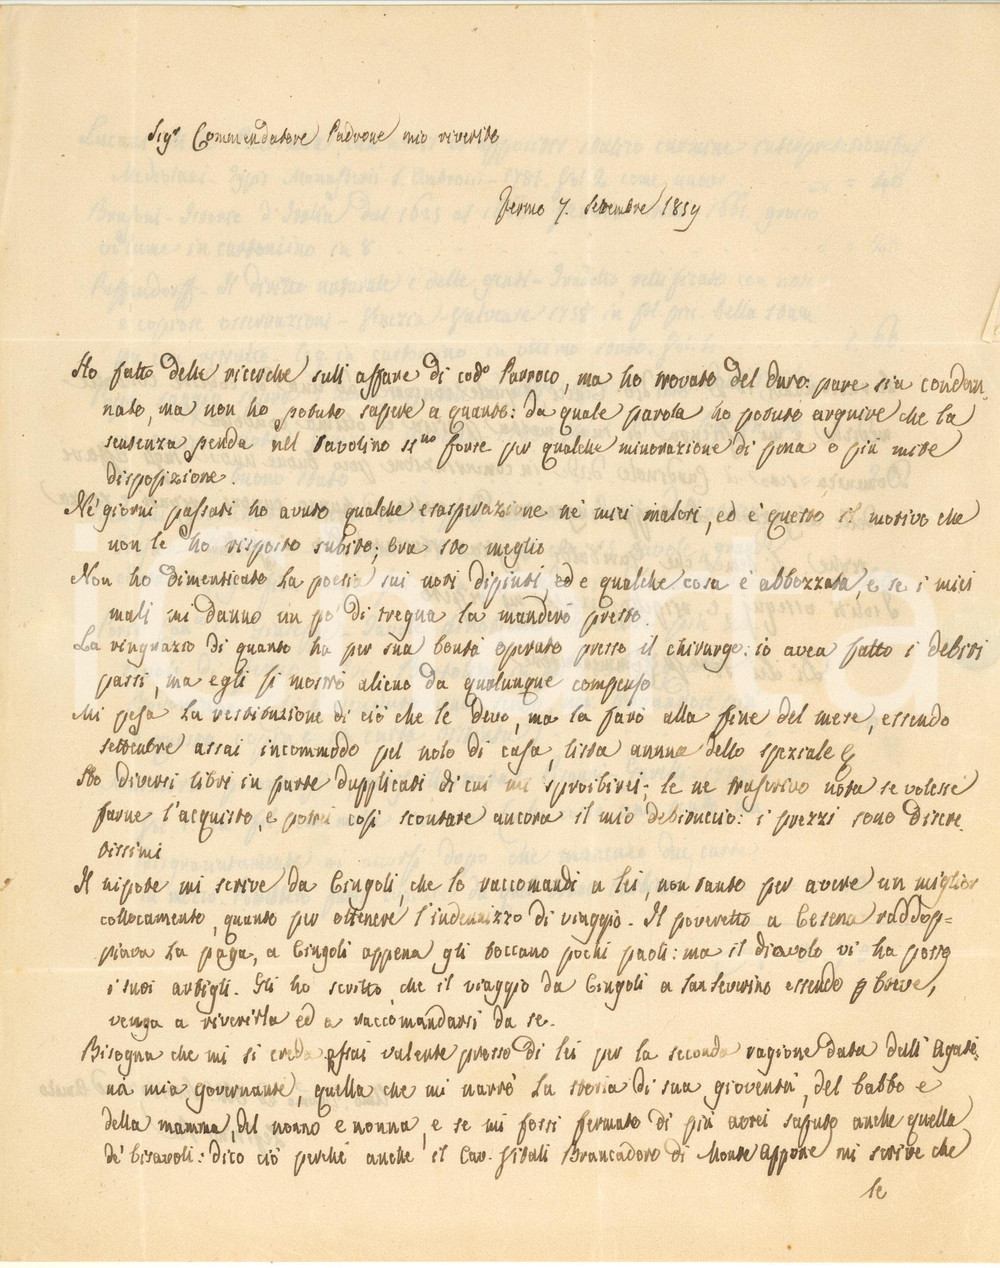 Sigr Commendatore Padrone mio riverito
Fermo 7. Settembre 1859
Ho fatto delle ricerche sull'affare di codo Parroco, ma ho trovato del duro: pare sia condan
nato, ma non ho potuto sapere a quanto: da quale parola ho potuto arguire che la
sentenza penda nel tavolino forse per qualche minorazione di pena o più mite
disposizione.
Ne' giorni passati ho avuto qualche esasperazione ne' miei malori, ed è questo il motivo che
non le ho risposto subito; ora sto meglio
Non ho dimenticato la poesia sui noti dipinti, ed e qualche cosa è abbozzata, e se i miei
mali mi danno un pò di tregua la manderò presto.
La ringrazio di quanto ha per sua bontà operato presso il chirurgo: io avea fatto i debiti
passi, ma egli si mostrò alieno da qualunque compenso
Mi pesa la restituzione di ciò che le devo, ma la farò alla fine del mese, essendo
settembre assai incommodo pel nolo di casa, lista annua dello speziale &
Ho diversi libri in parte dupplicati di cui mi sproibirei; le ne trascrivo nota se volesse
farne l'acquisto, e potrei così scontare ancora il mio debituccio: i prezzi sono discre
tissimi
Il nipote mi scrive da Cingoli, che lo raccomandi a lei, non tanto per avere un miglior
collocamento, quanto per ottenere l'indennizzo di viaggio. Il poveretto a Cesena raddop=
piava la paga, a Cingoli appena gli toccano pochi paoli: ma il diavolo vi ha posto
i suoi artigli. Gli ho scritto che il viaggio da Cingoli a Sanseverino essendo breve,
venga a riverirla ed a raccomandarsi da se.
Bisogna che mi si creda assai valente presso di lei per la seconda ragione data dall'Agate
na mia governante, quella che mi narrò la storia di sua gioventù, del babbo e
della mamma, del nonno e nonna, e se mi fossi fermato di più avrei saputo anche quella
de' bisavoli: dico ciò perchè anche il Cav. Vitali Brancadoro di Monte Appone mi scrive che
se